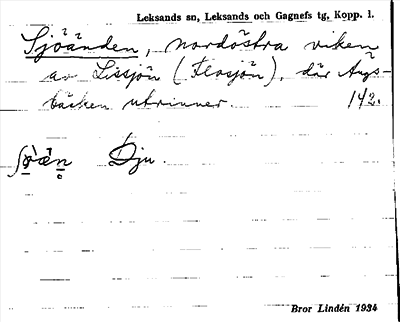 Leksands sn, Leksands och Gagnefs tg, Kopp. l.
Sjöänden, nordöstra viken
av Lissjön (Flosjön), där
bäcken utrinner. 142.
Dju.
Bror Lindén 1934